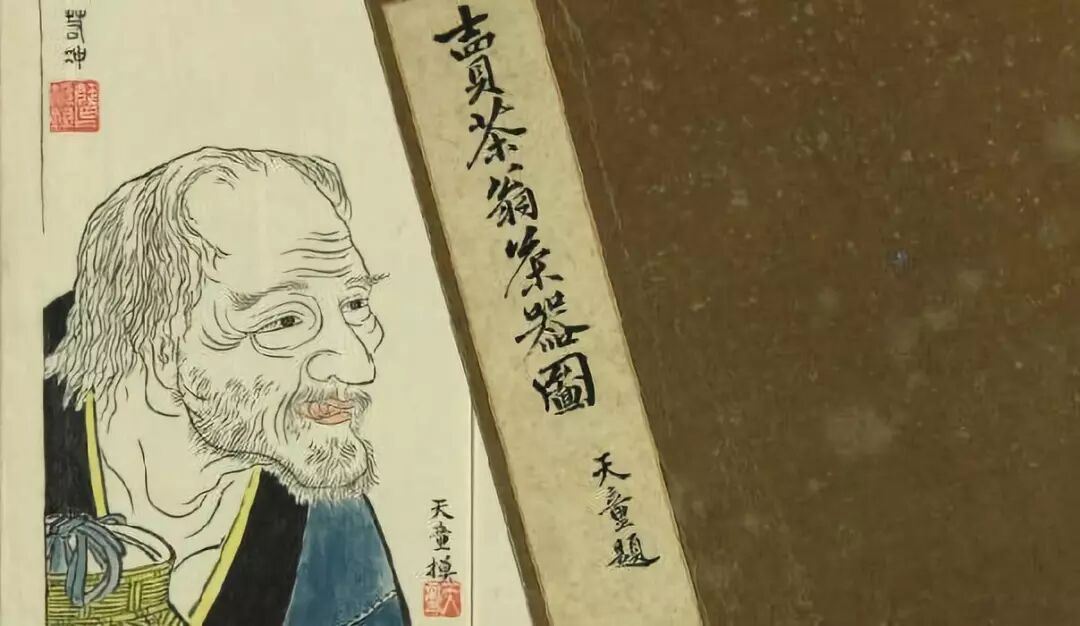 若冲
天童摸
賣茶翁茶器圖
天童題